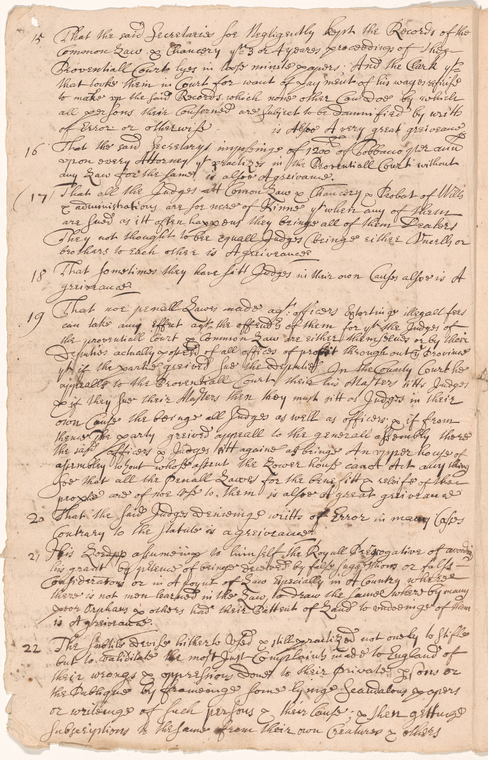 15 That the said Secretaries soe Negligently kept the Records of the
Common Law & Chancery yt 3 or 4 yeares proceedings of they
Provenciall Court lyes in lose minute papers: And the Clark yt
that tooke them in Court for want of paymt ment of his wages refuse
to make up the said Records which none other Can Doe by which
all persons their Conserned are subject to be Damnified by writt
of Error or otherwise is Alsoe A very great greivance
16 That the said Secretarys imposeinge of 1200 of Tobbacco per ann
upon every Attorney yt practizes in the Provenciall Court without
any Law for the same is alsoe A greivance
17 That all the Judges att Comon Law & Chancery & Probat of Wills
& administrations are soe nere of Kinne yt when any of them
are sued as itt often happens they beinge all of them
They not thought to be equall Judges beinge either Unckells or
brothers to each other is A greivance
18 That sometimes they have sitt Judges in their own Causes alsoe is A
greivance
19 That noe penall Lawes made agt officers Extortinge illegall fees
can take any effect agt the offenders of them for yt the Judges of
the provenciall Court & Common Law are either themselves or by their
Deputies actually posesed of all offices of profitt throughout ye Province
yt if the partie greived sue the Deputie In the County Court he
appealls to the Provenciall Court their his Master sitts Judges
& if they sue their Masters then they must sitt as Judges in their
own Cause the beinge all Judges as well as officers & if from
thence the party greived appeall to the generall assembly there
the said officers & Judges sitt againe as beinge An upper house of
assembly without whose assent the Lower house canot Act any thing
soe that all the Penall Lawes for the benefitt & releife of the
people are of noe use to them is alsoe A great greivance
20 That the said Judges denieinge writts of Error in many Cases
Contrary to the Statute is a greivance
21 His Lordpp assumeing to himself the Royall Prerogative of avoiding
his grant by pretence of beinge deceived by false suggestions or false
Considerations or in A poynt of Law Especially in A Country where
there is not men learned in the Law, to draw the same whereby many
poor orphans & others had their Pattent of Land to undoeinge of them
is A greivance
22 The subtile devise hitherto Used & still practized not onely to stifle
but to invalidate the most Just Complaints made to England of
their wrongs & oppressions done to their Private persons or
the Publique by frameinge some lyinge Scandalous papers
or writeinge of such persons & their Cause: & then gettinge
Subscriptions to the same from their own Creatures & others